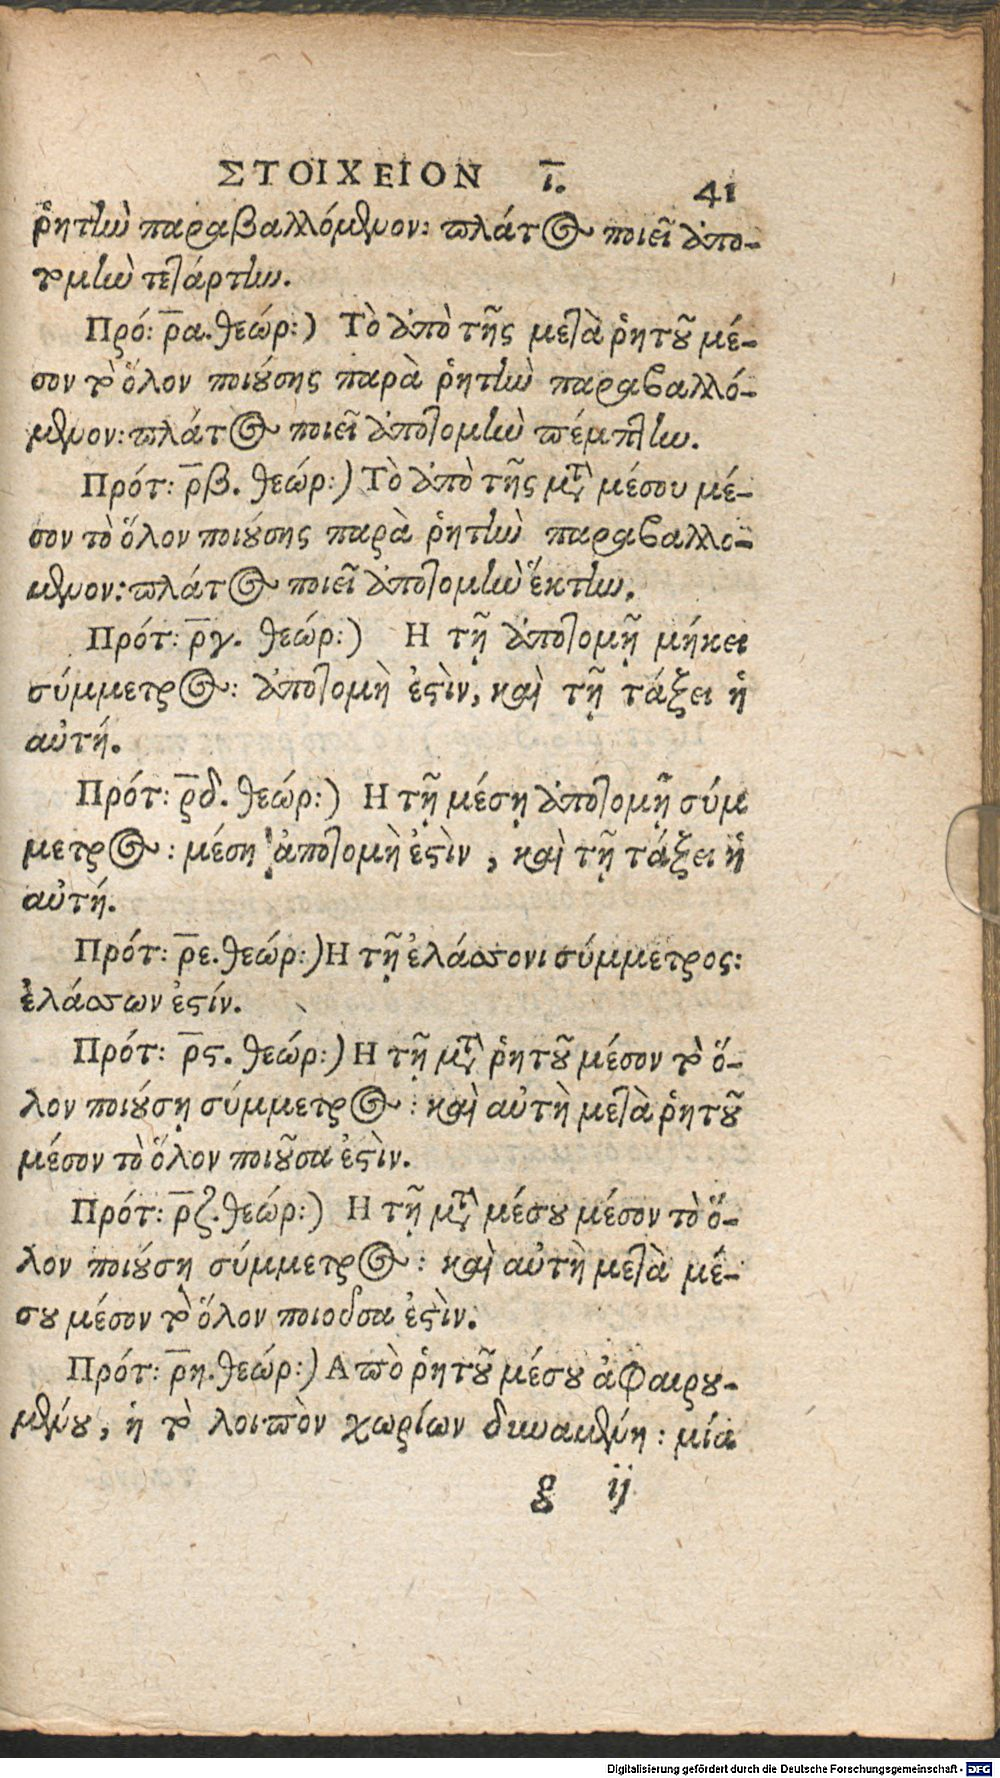 ΣΤΟΙΧΕΙΟΝ ι. 41
ῥητὴν παραβαλλόμενον: πλάτος ποιεῖ ἀπο-
τομὴν τετάρτην.
Πρό: ρα. θεώρ:) Τὸ ἀπὸ τῆς μετὰ ῥητοῦ μέ-
σον τὸ ὅλον ποιούσης παρὰ ῥητὴν παραβαλλό-
μενον: πλάτος ποιεῖ ἀποτομὴν πέμπτην.
Πρότ: ρβ. θεώρ:) Τὸ ἀπὸ τῆς μετὰ μέσου μέ-
σον τὸ ὅλον ποιούσης παρὰ ῥητὴν παραβαλλο-
μενον: πλάτος ποιεῖ ἀποτομὴν ἕκτην.
Πρότ: ργ. θεώρ:) Η τῇ ἀποτομῇ μήκει
σύμμετρος: ἀποτομὴ ἐστὶν, καὶ τῇ τάξει ἡ
αὐτή.
Πρότ: ρδ. θεώρ:) Η τῇ μέσῃ ἀποτομῇ σύμ
μετρος: μέση ἀποτομὴ ἐστὶν, καὶ τῇ τάξει ἡ
αὐτή.
Πρότ: ρε. θεώρ:) Η τῇ ἐλάσσονι σύμμετρος:
ἐλάσσων ἐστίν.
Πρότ: ρς. θεώρ:) Η τῇ μετὰ ῥητοῦ μέσον τὸ ὅ-
λον ποιούσῃ σύμμετρος: καὶ αὐτὴ μετὰ ῥητοῦ
μέσον τὸ ὅλον ποιοῦσα ἐστὶν.
Πρότ: ρζ. θεώρ:) Η τῇ μετὰ μέσου μέσον τὸ ὅ-
λον ποιούσῃ σύμμετρος: καὶ αὐτὴ μετὰ μέ-
σου μέσον τὸ ὅλον ποιοῦσα ἐστὶν.
Πρότ: ρη. θεώρ:) Απὸ ῥητοῦ μέσου ἀφαιρου-
μένου, ἡ τὸ λοιπὸν χωρίων δυναμένη: μία
g ij
Digitalisierung gefördert durch die Deutsche Forschungsgemeinschaft - DFG